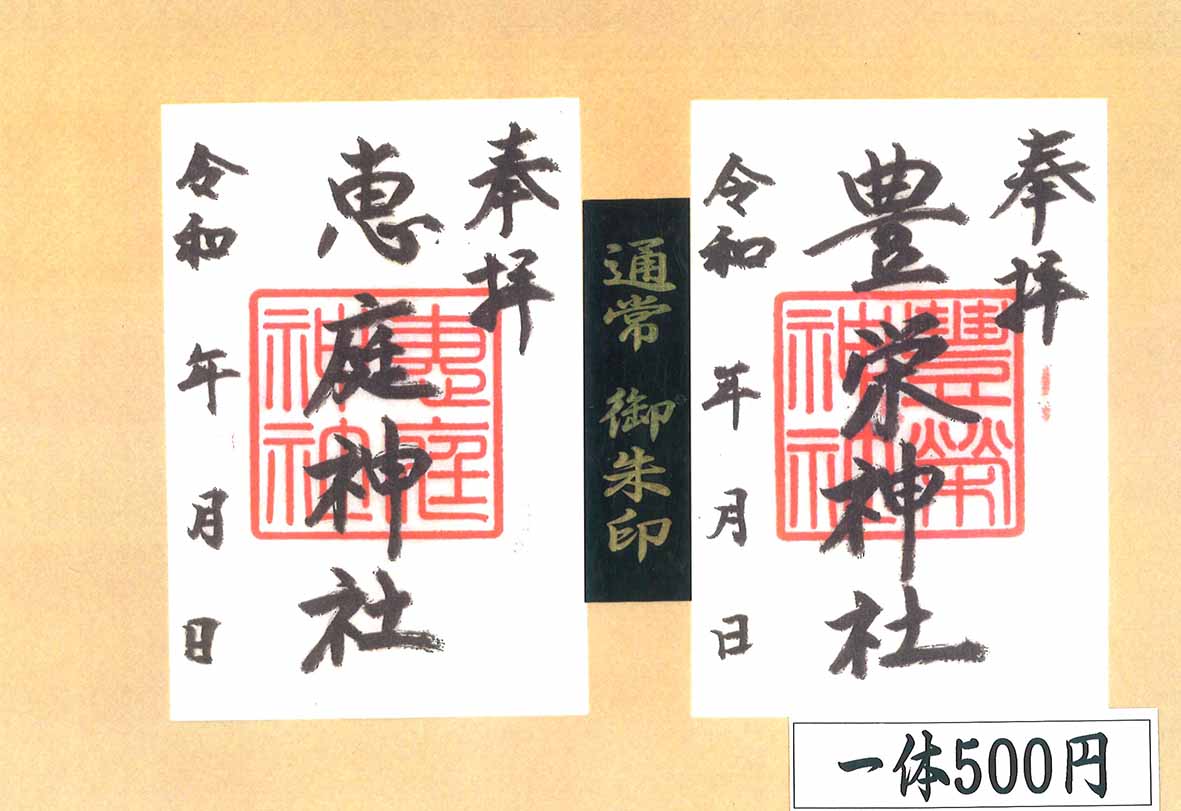 奉拝
豊栄神社
豊榮神社
令和 年 月 日
通常 御朱印
奉拝
恵庭神社
恵庭神社
令和 年 月 日
一体500円